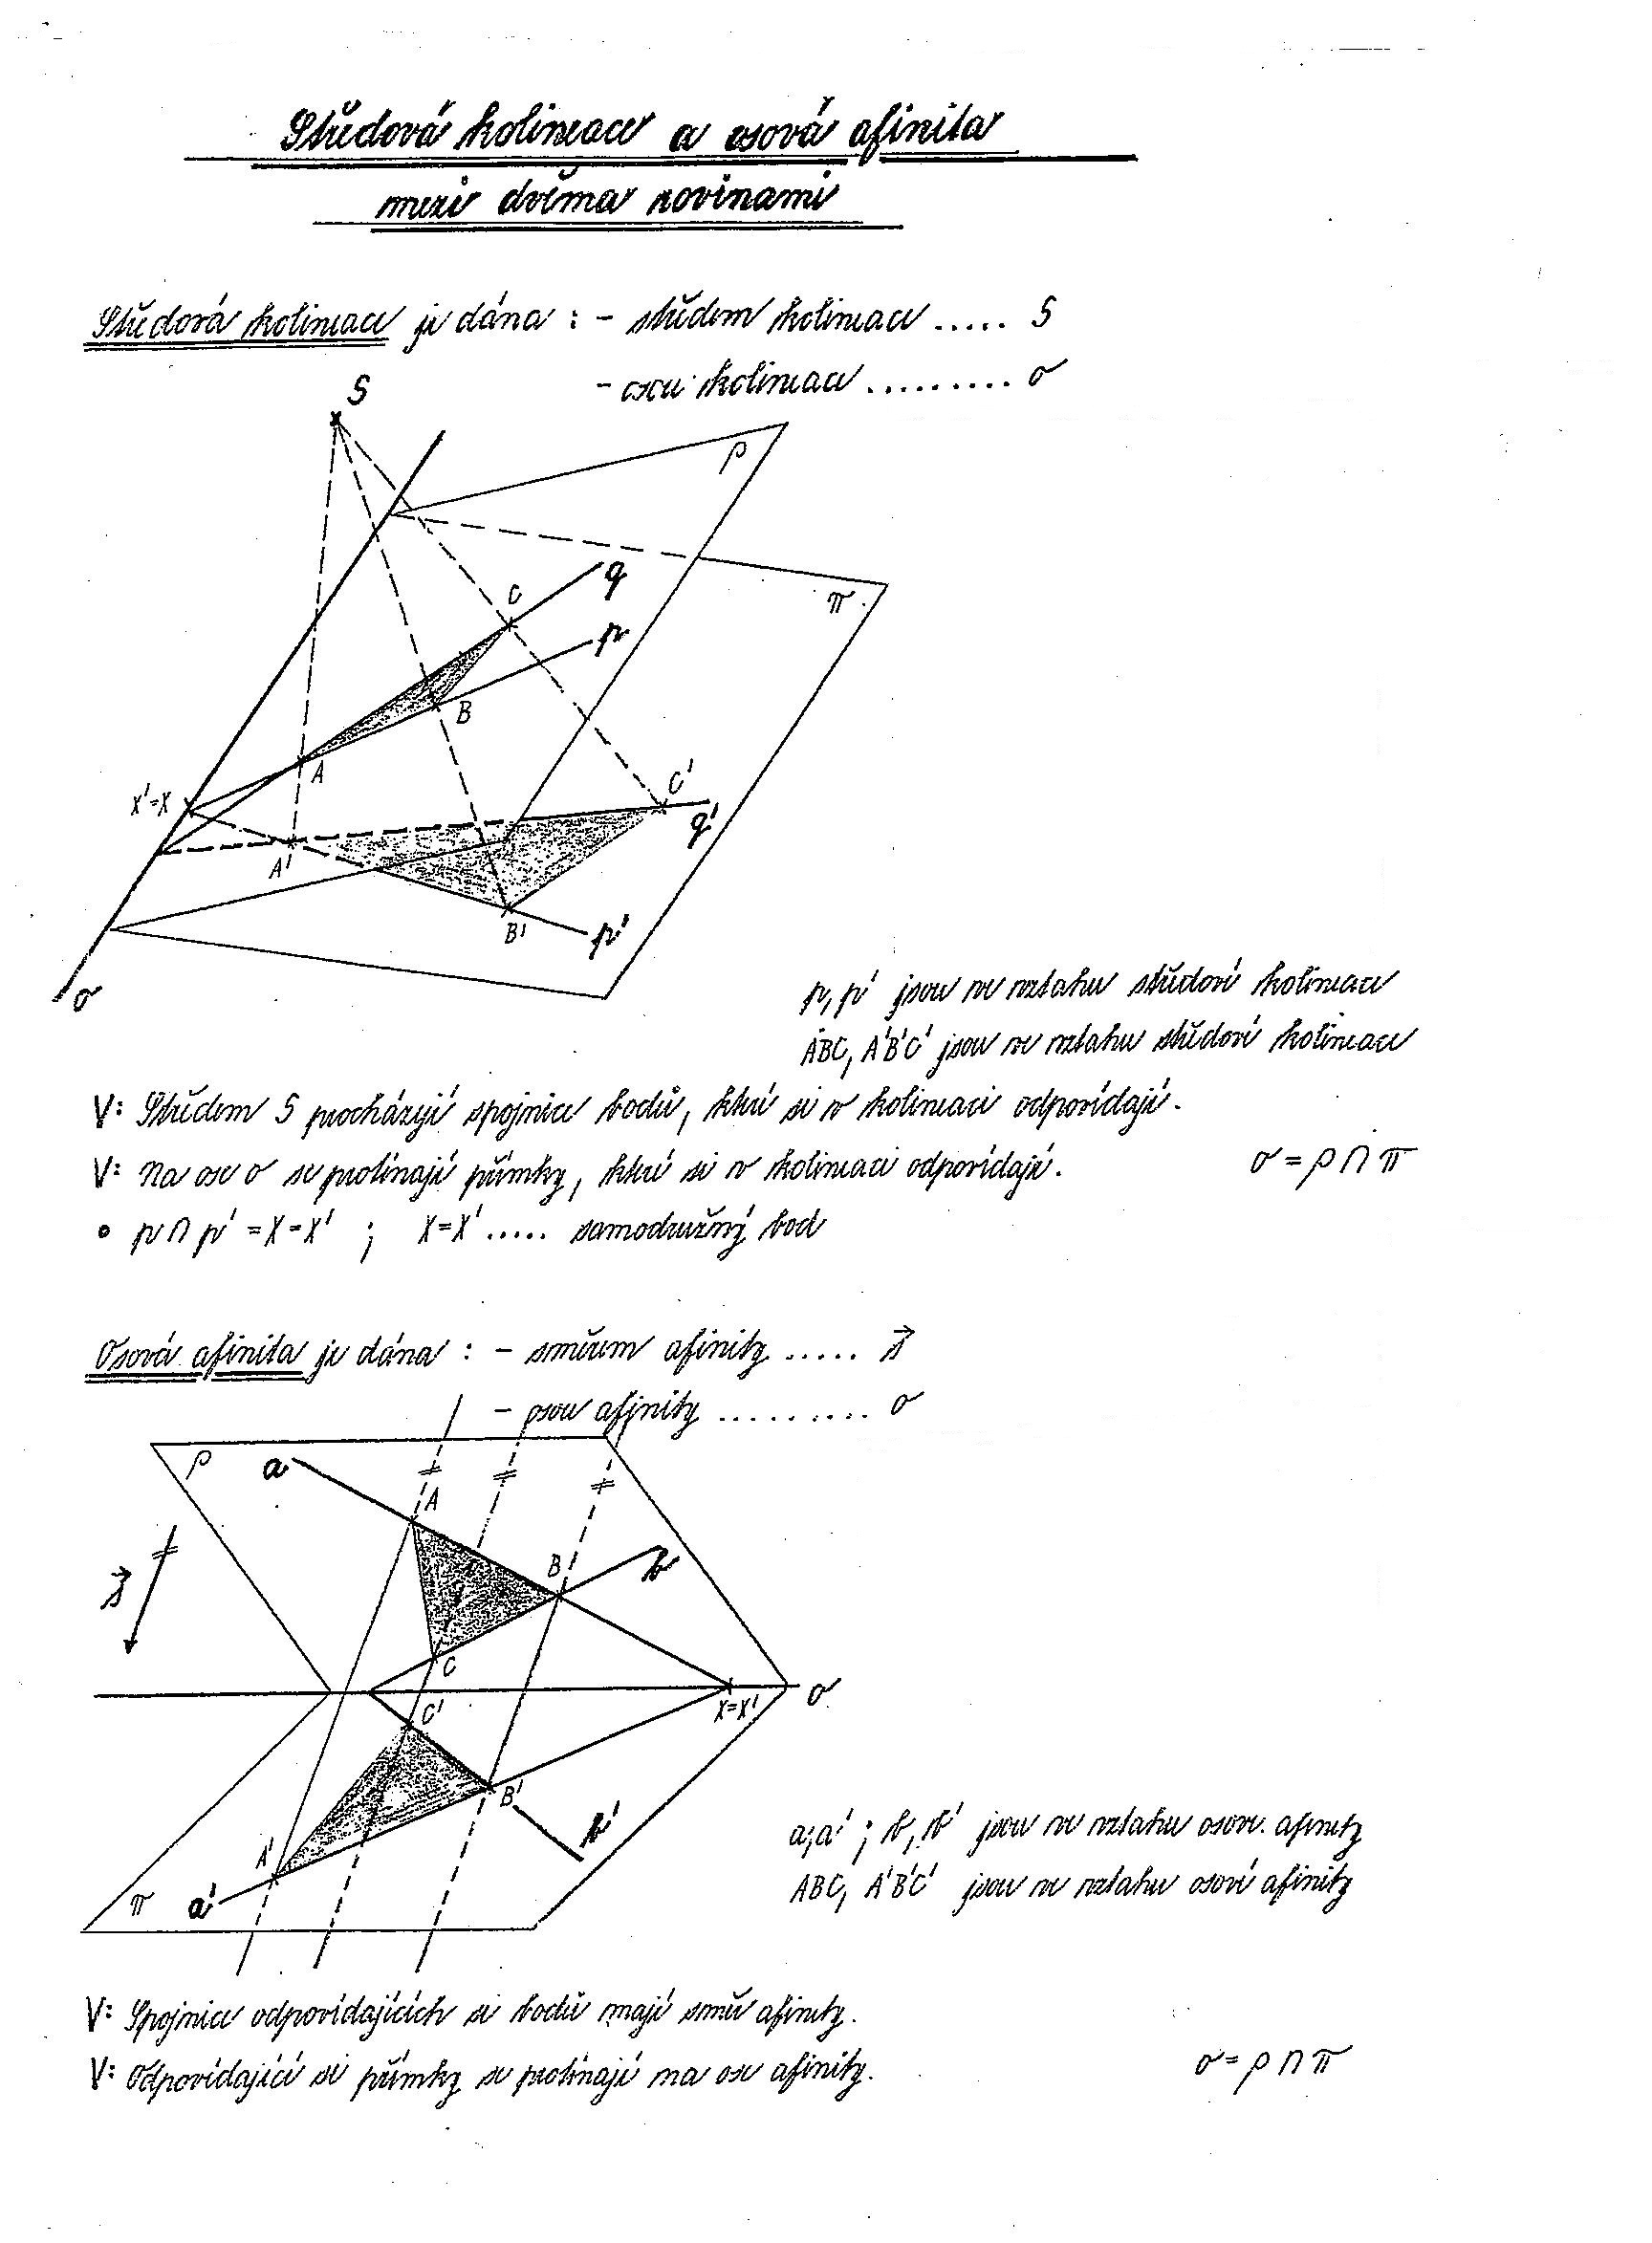 Středová kolineace a osová afinita
mezi dvěma rovinami
Středová kolineace je dána : - středem kolineace ..... S
- osou kolineace ......... o
S
ρ
π
C
q
p
B
A
X'=X
C'
q'
A'
B'
p'
o
p, p' jsou ve vztahu středové kolineace
ABC, A'B'C' jsou ve vztahu středové kolineace
V: Středem S procházejí spojnice bodů, které si v kolineaci odpovídají.
V: Na ose o se protínají přímky, které si v kolineaci odpovídají. o = ρ ∩ π
• p ∩ p' = X = X' ; X = X' ..... samodružný bod
Osová afinita je dána : - směrem afinity ..... s⃗
- osou afinity .......... o
ρ
a
A
B
b
s⃗
C
C'
X=X'
o
B'
b'
A'
π
a'
a, a' ; b, b' jsou ve vztahu osov. afinity
ABC, A'B'C' jsou ve vztahu osové afinity
V: Spojnice odpovídajících si bodů mají směr afinity.
V: Odpovídající si přímky se protínají na ose afinity. o = ρ ∩ π